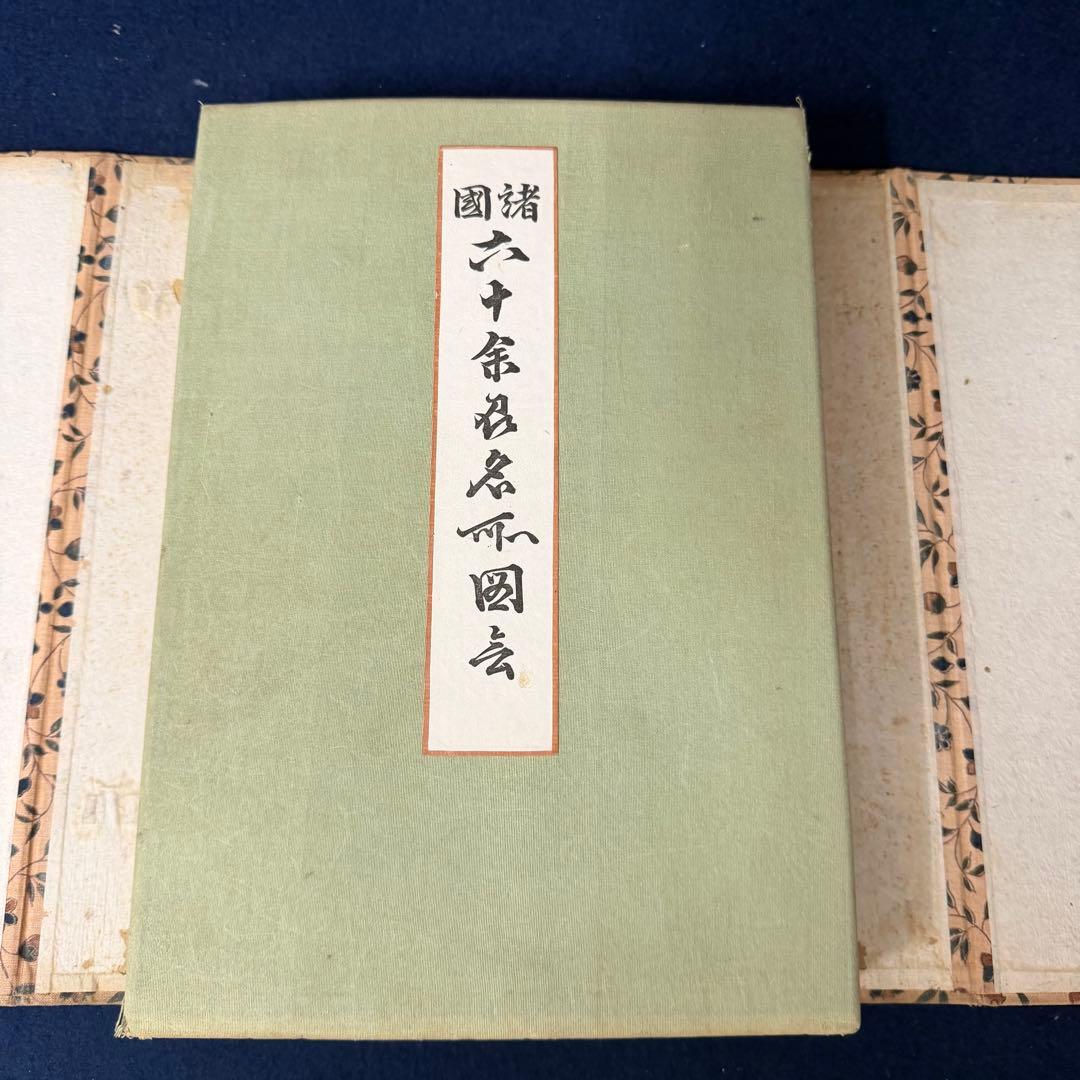 諸國
六十余州名所図会